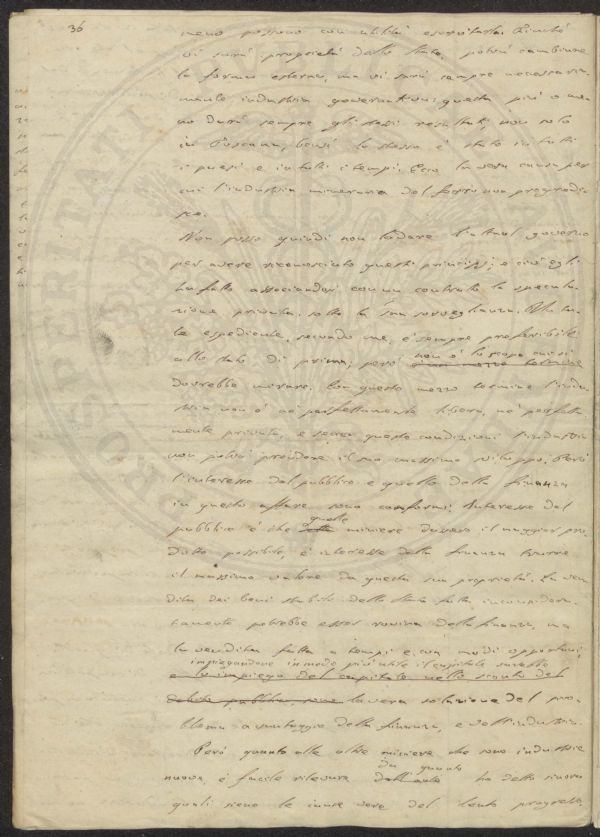 36
meno possono con utilità esercitarla. Finché
vi sarà proprietà dello Stato, potrà cambiare
la forma esterna, ma vi sarà sempre necessaria-
mente industria governativa; questa più o me-
no darà sempre gli stessi resultati, non solo
in Toscana, bensì lo stesso è stato in tutti
i paesi e in tutti i tempi. Ecco la vera causa per
cui l'industria mineraria del ferro non progredi-
sce.
Non posso quindi non lodare l'attual governo
per avere riconosciuto questi principj, e cioè egli
ha fatto associandosi con un contratto la specula-
zione privata sotto la sua sorveglianza. Ma ta-
le espediente, secondo me, è sempre preferibile
allo stato di prima; però non è lo scopo cui si
dovrebbe mirare. Con questo mezzo termine l'indu-
stria non è né perfettamente libera, né perfetta-
mente privata, e senza queste condizioni l'industria
non potrà prendere il suo massimo sviluppo. Però
l'interesse del pubblico e quello della finanza
in questo affare sono conformi. Interesse del
pubblico è che quelle miniere dessero il maggior pro-
dotto possibile, è interesse della finanza trarre
il massimo valore da questa sua proprietà. La ven-
dita dei beni stabili dello Stato fatta inconsidera-
tamente potrebbe esser rovina della finanza, ma
la vendita fatta a tempi e con modi opportuni,
impiegandone in modo più utile il capitale sarebbe
e lo impiego del capitale nello sconto del
debito pubblico sono la vera soluzione del pro-
blema a vantaggio della finanza, e dell'industria.
Però quanto alle altre miniere che sono industrie
da quanto
nuove, è facile rilevare ho detto sinora
quali sieno le cause vere del lento progresso